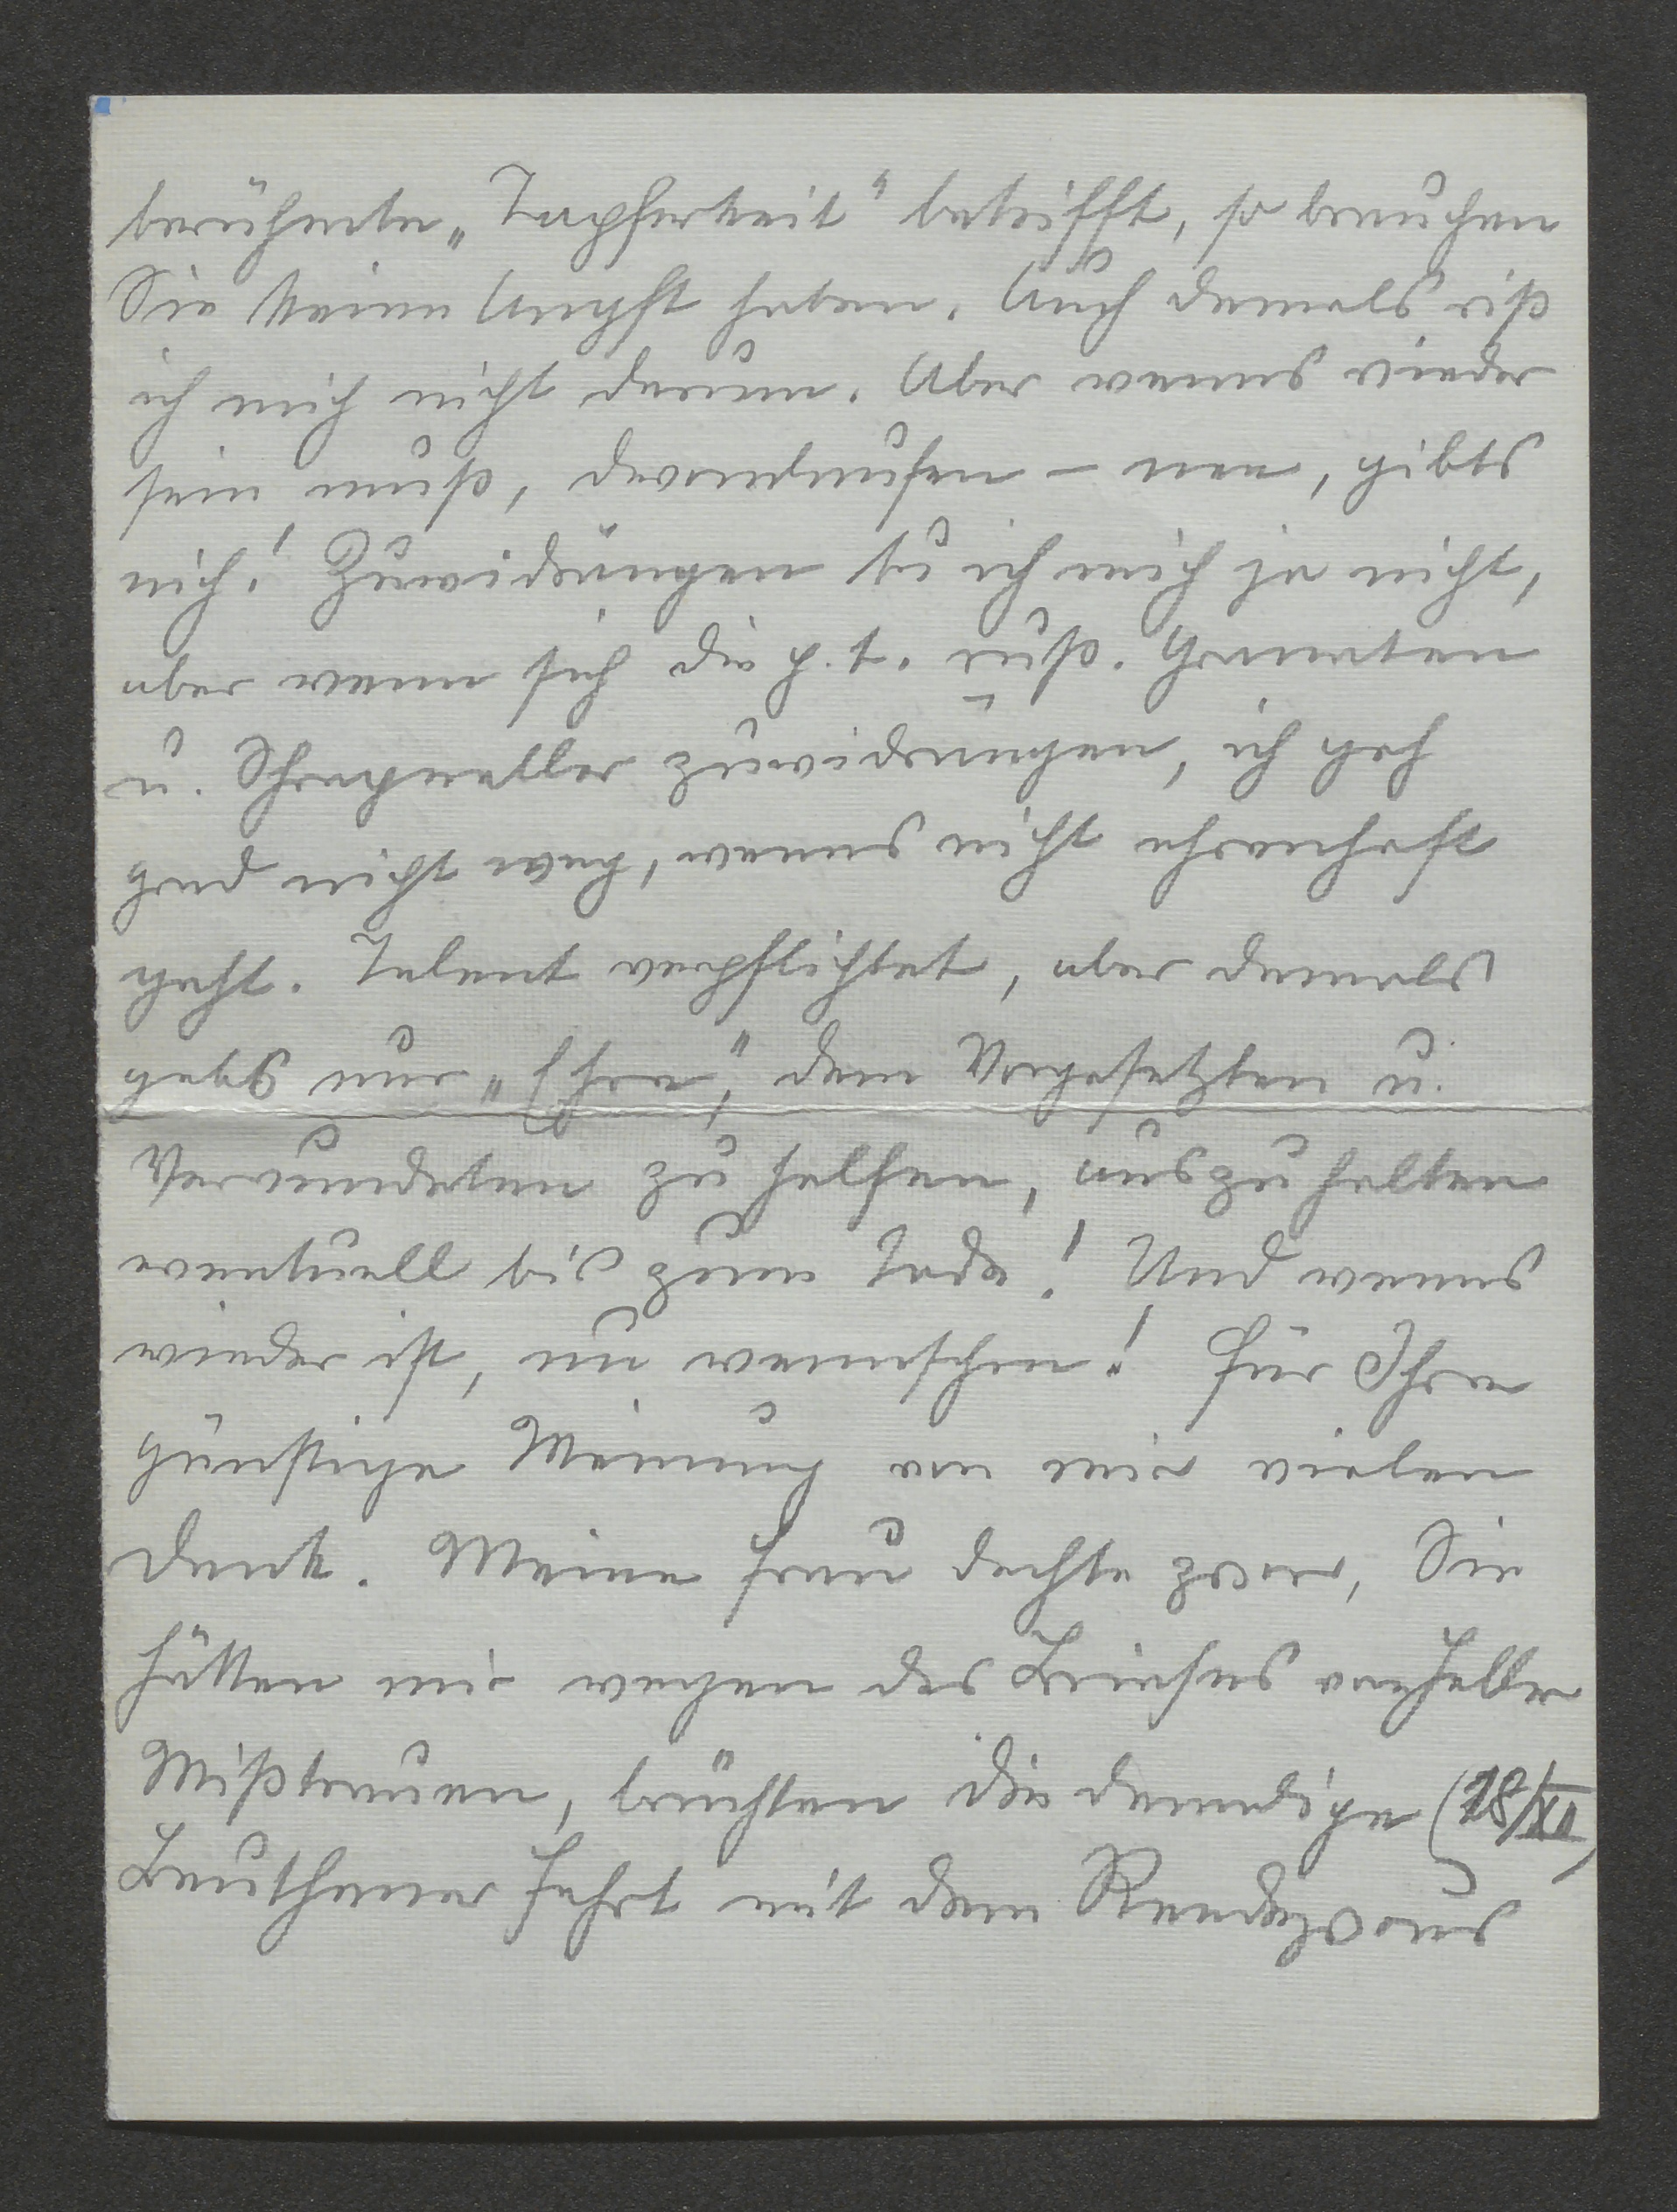 berühmte „Tapferkeit“ betrifft, so brauchen
Sie keine Angst haben. Auch damals riß
ich mich nicht darum. Aber wenns wieder
sein muß, davonlaufen – nee, gibts
nich! Zuwidrängen tu ich mich ja nicht,
aber wenn sich die p. t. russ. Granaten
u. Schrapnelle zuwidrängen, ich geh
grad nicht weg, wenns nicht ehrenhaft
geht. Talent verpflichtet, aber damals
gabs nur „Ehre“, den Vorgesetzten u.
Verwundeten zu helfen, auszuhalten
eventuell bis zum Tode! Und wenns
wieder ist, nu wennschon! Für Ihre
günstige Meinung von mir vielen
Dank. Meine Frau dachte zwar, Sie
hätten mir wegen des Briefes vorhalten
Mißtrauen, brächten die damalige (18/XII)
Beuthener Fahrt mit dem Rendezvous